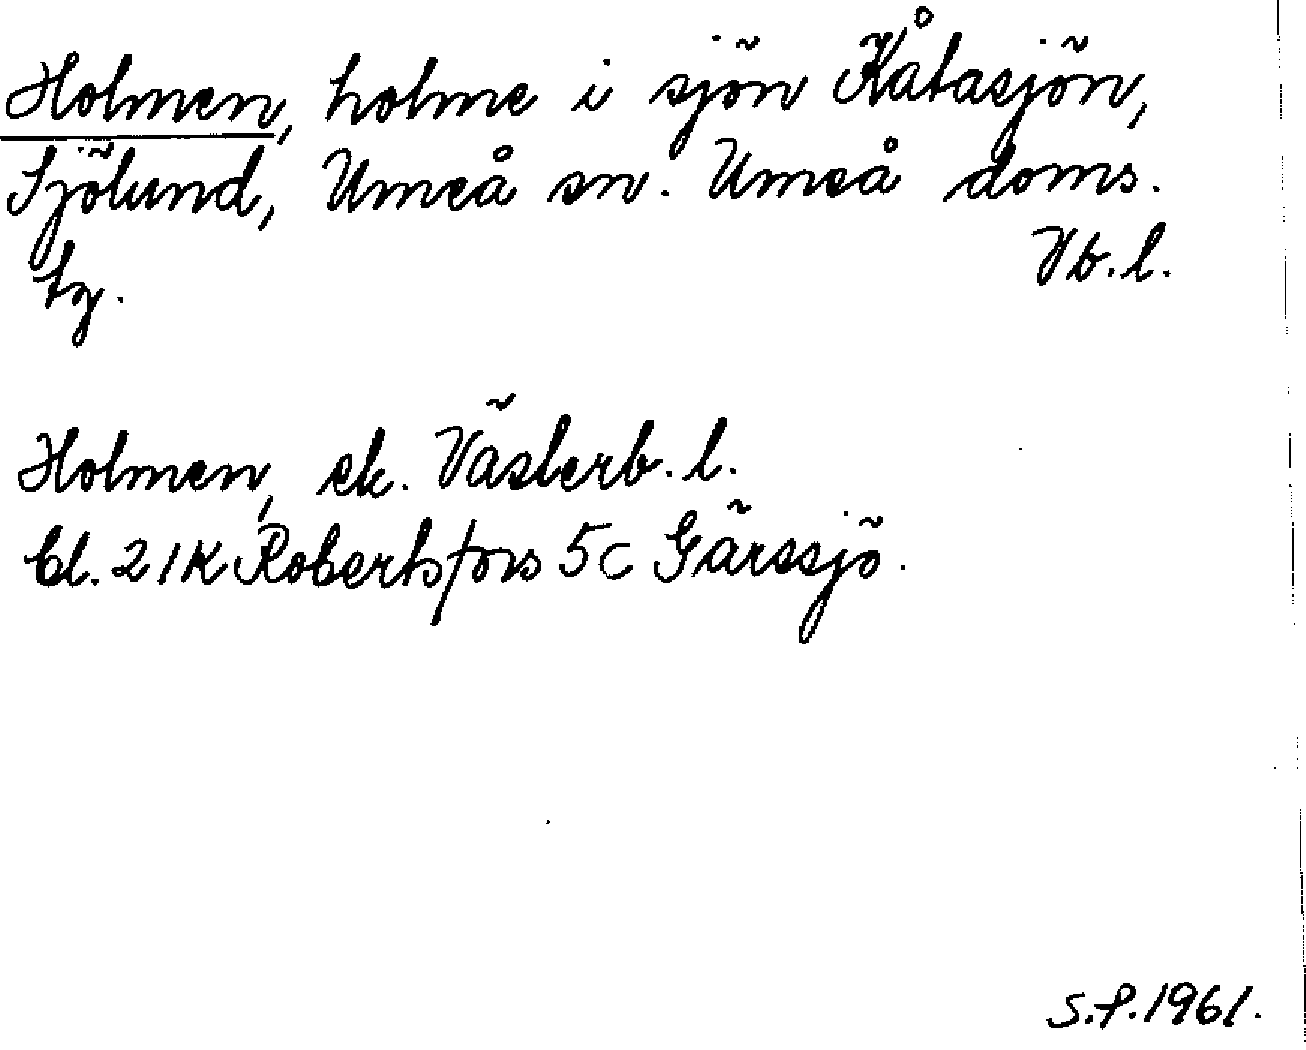 Holmen, holme i sjön Kåtasjön,
Sjölund, Umeå sn. Umeå doms.
tg. Vb. l.
Holmen, ek. Västerb. l.
bl. 21K Robertsfors 5c Gärssjö.
S.P. 1961.